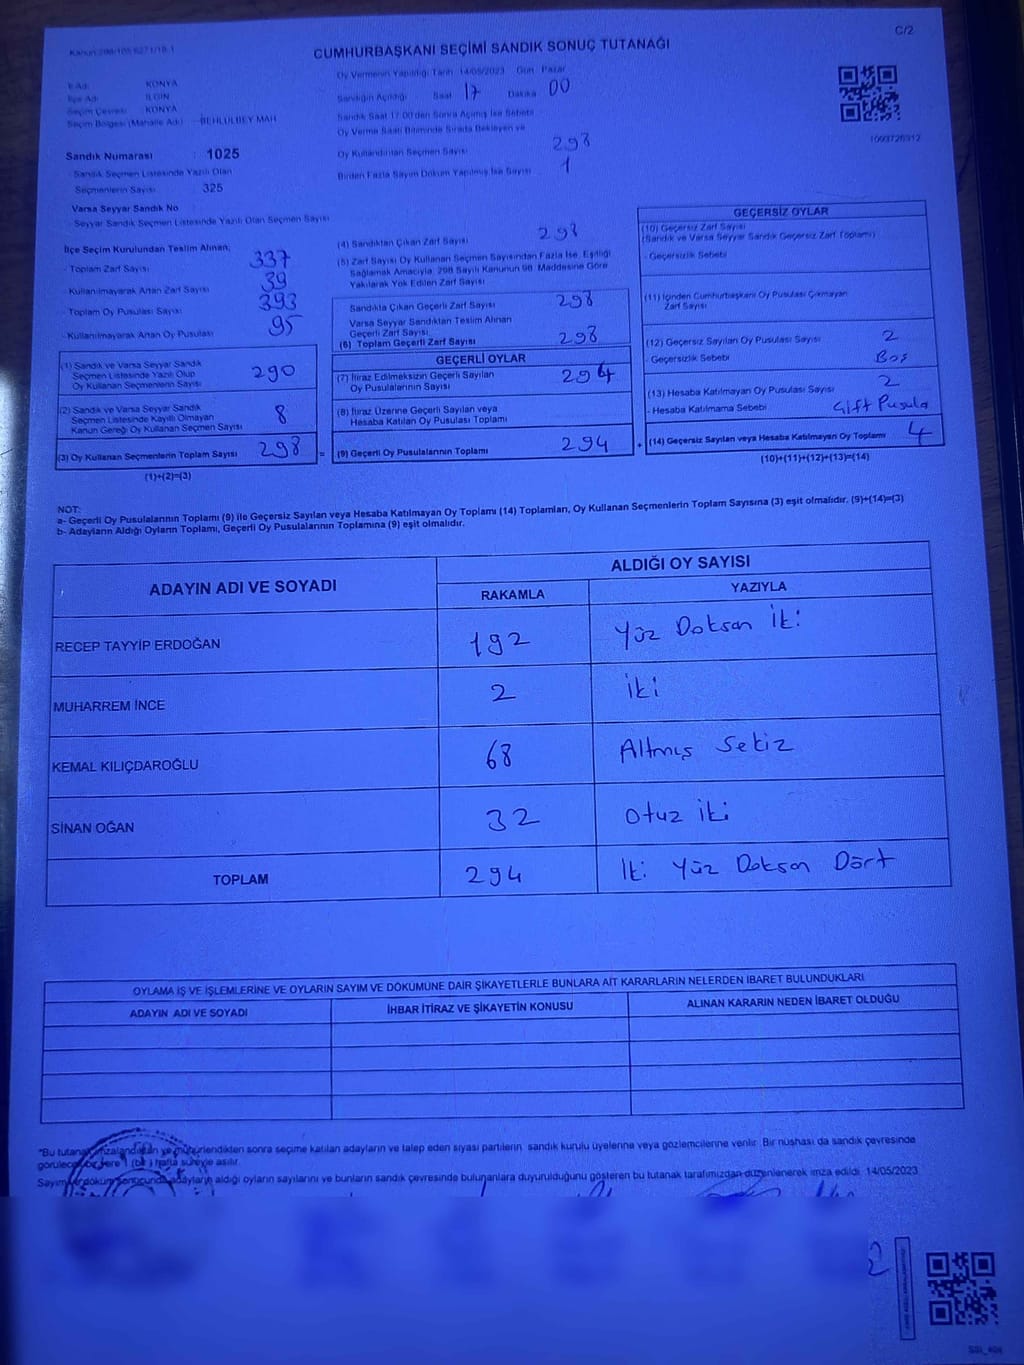 C/2
Kanun:298/105 6271/18.1
CUMHURBAŞKANI SEÇİMİ SANDIK SONUÇ TUTANAĞI
İl Adı: KONYA
İlçe Adı ILGIN
Seçim Çevresi: KONYA
Seçim Bölgesi (Mahalle Adı) BEHLÜLBEY MAH
Sandık Numarası : 1025
- Sandık Seçmen Listesinde Yazılı Olan
Seçmenlerin Sayısı 325
Varsa Seyyar Sandık No
- Seyyar Sandık Seçmen Listesinde Yazılı Olan Seçmen Sayısı
Oy Vermenin Yapıldığı Tarih: 14/05/2023 Gün: Pazar
Sandığın Açıldığı Saat 17 Dakika 00
Sandık Saat 17.00'den Sonra Açılmış İse Sebebi
Oy Verme Saati Bitiminde Sırada Bekleyen ve
Oy Kullandırılan Seçmen Sayısı 298
Birden Fazla Sayım Döküm Yapılmış İse Sayısı 1
İlçe Seçim Kurulundan Teslim Alınan;
- Toplam Zarf Sayısı 337
- Kullanılmayarak Artan Zarf Sayısı 39
- Toplam Oy Pusulası Sayısı 393
- Kullanılmayarak Artan Oy Pusulası 95
(1) Sandık ve Varsa Seyyar Sandık
Seçmen Listesinde Yazılı Olup
Oy Kullanan Seçmenlerin Sayısı 290
(2) Sandık ve Varsa Seyyar Sandık
Seçmen Listesinde Kayıtlı Olmayan
Kanun Gereği Oy Kullanan Seçmen Sayısı 8
(3) Oy Kullanan Seçmenlerin Toplam Sayısı 298 =
(1)+(2)=(3)
(4) Sandıktan Çıkan Zarf Sayısı 298
(5) Zarf Sayısı Oy Kullanan Seçmen Sayısından Fazla İse, Eşitliği
Sağlamak Amacıyla, 298 Sayılı Kanunun 98. Maddesine Göre
Yakılarak Yok Edilen Zarf Sayısı
Sandıkta Çıkan Geçerli Zarf Sayısı 298
Varsa Seyyar Sandıktan Teslim Alınan
Geçerli Zarf Sayısı
(6) Toplam Geçerli Zarf Sayısı 298
GEÇERLİ OYLAR
(7) İtiraz Edilmeksizin Geçerli Sayılan
Oy Pusulalarının Sayısı 294
(8) İtiraz Üzerine Geçerli Sayılan veya
Hesaba Katılan Oy Pusulası Toplamı
(9) Geçerli Oy Pusulalarının Toplamı 294 +
1003726312
GEÇERSİZ OYLAR
(10) Geçersiz Zarf Sayısı
(Sandık ve Varsa Seyyar Sandık Geçersiz Zarf Toplamı)
- Geçersizlik Sebebi
(11) İçinden Cumhurbaşkanı Oy Pusulası Çıkmayan
Zarf Sayısı
(12) Geçersiz Sayılan Oy Pusulası Sayısı 2
- Geçersizlik Sebebi Boş
(13) Hesaba Katılmayan Oy Pusulası Sayısı 2
- Hesaba Katılmama Sebebi Çift Pusula
(14) Geçersiz Sayılan veya Hesaba Katılmayan Oy Toplamı 4
(10)+(11)+(12)+(13)=(14)
NOT:
a- Geçerli Oy Pusulalarının Toplamı (9) ile Geçersiz Sayılan veya Hesaba Katılmayan Oy Toplamı (14) Toplamları, Oy Kullanan Seçmenlerin Toplam Sayısına (3) eşit olmalıdır. (9)+(14)=(3)
b- Adayların Aldığı Oyların Toplamı, Geçerli Oy Pusulalarının Toplamına (9) eşit olmalıdır.
ADAYIN ADI VE SOYADI ALDIĞI OY SAYISI
RAKAMLA YAZIYLA
RECEP TAYYİP ERDOĞAN 192 Yüz Doksan İki
MUHARREM İNCE 2 İki
KEMAL KILIÇDAROĞLU 68 Altmış Sekiz
SİNAN OĞAN 32 Otuz iki
TOPLAM 294 İki Yüz Doksan Dört
OYLAMA İŞ VE İŞLEMLERİNE VE OYLARIN SAYIM VE DÖKÜMÜNE DAİR ŞİKAYETLERLE BUNLARA AİT KARARLARIN NELERDEN İBARET BULUNDUKLARI
ADAYIN ADI VE SOYADI İHBAR İTİRAZ VE ŞİKAYETİN KONUSU ALINAN KARARIN NEDEN İBARET OLDUĞU
"Bu tutanak imzalandıktan ve mühürlendikten sonra seçime katılan adayların ve talep eden siyasi partilerin sandık kurulu üyelerine veya gözlemcilerine verilir. Bir nüshası da sandık çevresinde
görülecek bir yere 1 (bir) hafta süreyle asılır.
Sayım ve döküm sonucunda adayların aldığı oyların sayılarını ve bunların sandık çevresinde bulunanlara duyurulduğunu gösteren bu tutanak tarafımızdan düzenlenerek imza edildi. 14/05/2023